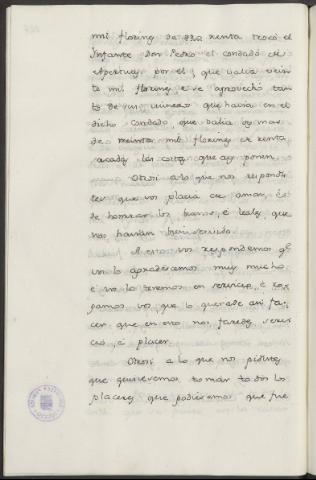 mil florins de renta troco el
Infante Don Pedro el condado de
Apertusa por el, que valia vein
te mil florins, e se aprovecho tan
to de un que havia en el
dicho condado, que valia oy mas
de treinta mil florins de renta,
sacadas las costas que ay ponen.
Otrosi a lo que nos respondis
tes que vos placia de amar, é
de honrar los buenos, é leales que
nos havian bien servido.
A esto vos respondemos qe
vos lo agradecemos muy mucho,
e vos lo tenemos en servicio, é ro
gamos vos que lo querade asi fa
cer que en esto nos faredes servi
cio, é placer.
Otrosi a lo que nos pidistes
que quisieremos tomar todos los
placeres que podieramos que fue